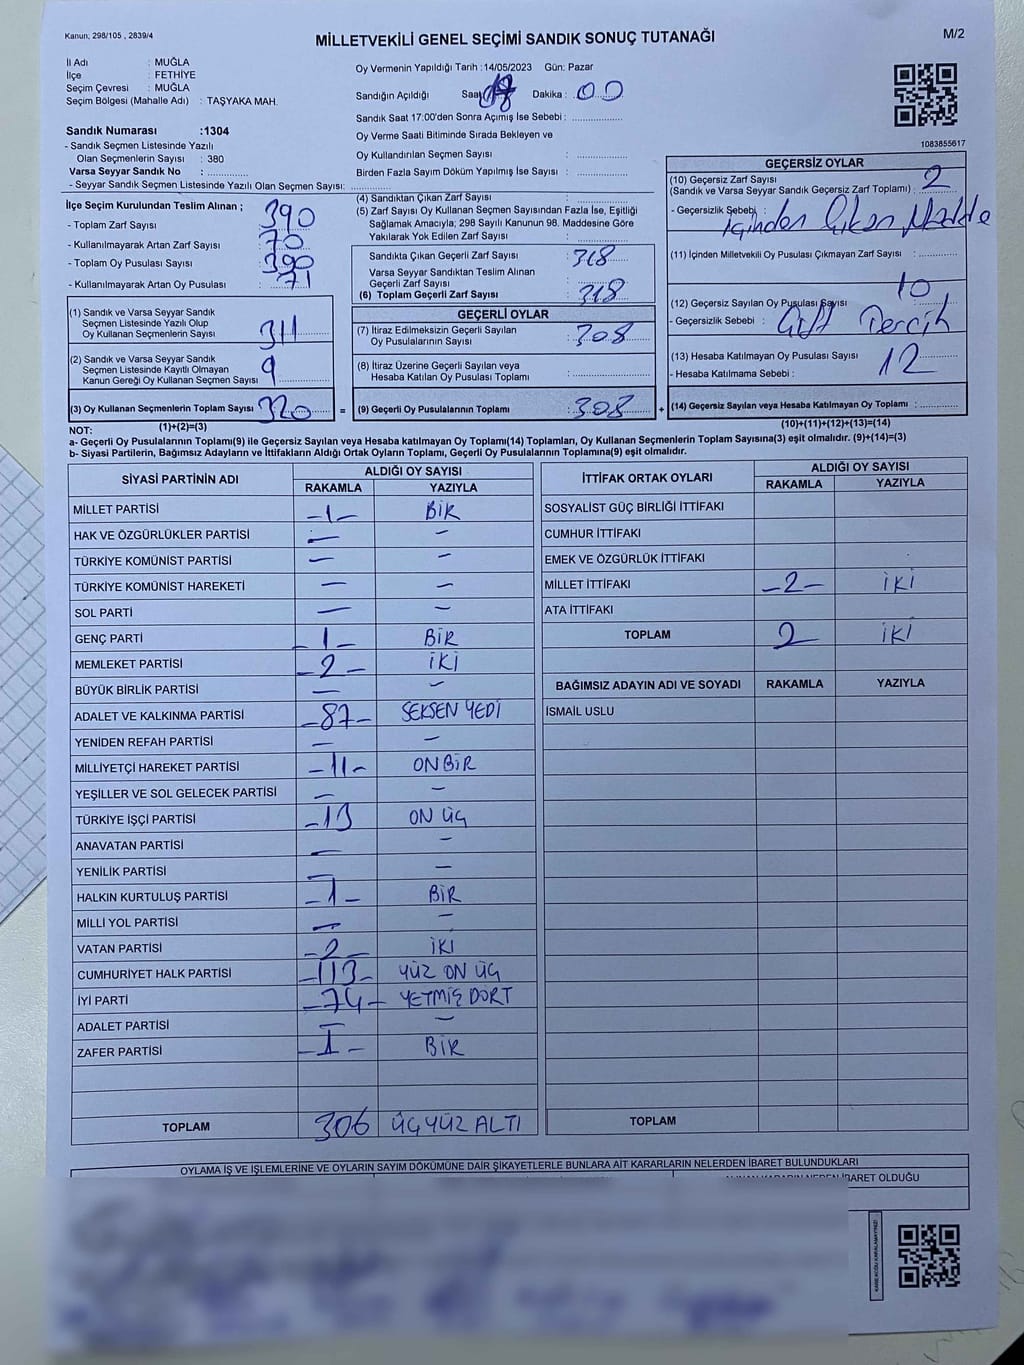 Kanun; 298/105 , 2839/4
MİLLETVEKİLİ GENEL SEÇİMİ SANDIK SONUÇ TUTANAĞI
M/2
İl Adı : MUĞLA
İlçe : FETHİYE
Seçim Çevresi : MUĞLA
Seçim Bölgesi (Mahalle Adı) : TAŞYAKA MAH.
Sandık Numarası :1304
- Sandık Seçmen Listesinde Yazılı
Olan Seçmenlerin Sayısı : 380
Varsa Seyyar Sandık No :
- Seyyar Sandık Seçmen Listesinde Yazılı Olan Seçmen Sayısı:
Oy Vermenin Yapıldığı Tarih :14/05/2023 Gün: Pazar
Sandığın Açıldığı Saat Dakika : 00
Sandık Saat 17:00'den Sonra Açımış İse Sebebi :
Oy Verme Saati Bitiminde Sırada Bekleyen ve
Oy Kullandırılan Seçmen Sayısı :
Birden Fazla Sayım Döküm Yapılmış İse Sayısı :
1083855617
İlçe Seçim Kurulundan Teslim Alınan ;
- Toplam Zarf Sayısı : 390
- Kullanılmayarak Artan Zarf Sayısı : 70
- Toplam Oy Pusulası Sayısı : 390
- Kullanılmayarak Artan Oy Pusulası : 71
(1) Sandık ve Varsa Seyyar Sandık
Seçmen Listesinde Yazılı Olup
Oy Kullanan Seçmenlerin Sayısı : 311
(2) Sandık ve Varsa Seyyar Sandık
Seçmen Listesinde Kayıtlı Olmayan
Kanun Gereği Oy Kullanan Seçmen Sayısı : 9
(3) Oy Kullanan Seçmenlerin Toplam Sayısı : 320 =
(4) Sandıktan Çıkan Zarf Sayısı :
(5) Zarf Sayısı Oy Kullanan Seçmen Sayısından Fazla İse, Eşitliği
Sağlamak Amacıyla; 298 Sayılı Kanunun 98. Maddesine Göre
Yakılarak Yok Edilen Zarf Sayısı :
Sandıkta Çıkan Geçerli Zarf Sayısı : 318
Varsa Seyyar Sandıktan Teslim Alınan
Geçerli Zarf Sayısı :
(6) Toplam Geçerli Zarf Sayısı : 318
GEÇERLİ OYLAR
(7) İtiraz Edilmeksizin Geçerli Sayılan
Oy Pusulalarının Sayısı : 308
(8) İtiraz Üzerine Geçerli Sayılan veya
Hesaba Katılan Oy Pusulası Toplamı :
(9) Geçerli Oy Pusulalarının Toplamı : 308 +
GEÇERSİZ OYLAR
(10) Geçersiz Zarf Sayısı
(Sandık ve Varsa Seyyar Sandık Geçersiz Zarf Toplamı) : 2
- Geçersizlik Sebebi : İçinden Çıkan Madde
(11) İçinden Milletvekili Oy Pusulası Çıkmayan Zarf Sayısı :
(12) Geçersiz Sayılan Oy Pusulası Sayısı 10
- Geçersizlik Sebebi : Çift Tercih
(13) Hesaba Katılmayan Oy Pusulası Sayısı : 12
- Hesaba Katılmama Sebebi :
(14) Geçersiz Sayılan veya Hesaba Katılmayan Oy Toplamı :
NOT: (1)+(2)=(3)
(10)+(11)+(12)+(13)=(14)
a- Geçerli Oy Pusulalarının Toplamı(9) ile Geçersiz Sayılan veya Hesaba katılmayan Oy Toplamı(14) Toplamları, Oy Kullanan Seçmenlerin Toplam Sayısına(3) eşit olmalıdır. (9)+(14)=(3)
b- Siyasi Partilerin, Bağımsız Adayların ve İttifakların Aldığı Ortak Oyların Toplamı, Geçerli Oy Pusulalarının Toplamına(9) eşit olmalıdır.
SİYASİ PARTİNİN ADI
ALDIĞI OY SAYISI
RAKAMLA YAZIYLA
MİLLET PARTİSİ -1- BİR
HAK VE ÖZGÜRLÜKLER PARTİSİ — —
TÜRKİYE KOMÜNİST PARTİSİ — —
TÜRKİYE KOMÜNİST HAREKETİ — —
SOL PARTİ — —
GENÇ PARTİ -1- BİR
MEMLEKET PARTİSİ -2- İKİ
BÜYÜK BİRLİK PARTİSİ — —
ADALET VE KALKINMA PARTİSİ -87- SEKSEN YEDİ
YENİDEN REFAH PARTİSİ — —
MİLLİYETÇİ HAREKET PARTİSİ -11- ONBİR
YEŞİLLER VE SOL GELECEK PARTİSİ — —
TÜRKİYE İŞÇİ PARTİSİ -13 ON ÜÇ
ANAVATAN PARTİSİ — —
YENİLİK PARTİSİ — —
HALKIN KURTULUŞ PARTİSİ -1- BİR
MİLLİ YOL PARTİSİ — —
VATAN PARTİSİ -2- İKİ
CUMHURİYET HALK PARTİSİ -113- YÜZ ON ÜÇ
İYİ PARTİ -74- YETMİŞ DÖRT
ADALET PARTİSİ — —
ZAFER PARTİSİ -1- BİR
TOPLAM 306 ÜÇYÜZ ALTI
İTTİFAK ORTAK OYLARI
ALDIĞI OY SAYISI
RAKAMLA YAZIYLA
SOSYALİST GÜÇ BİRLİĞİ İTTİFAKI
CUMHUR İTTİFAKI
EMEK VE ÖZGÜRLÜK İTTİFAKI
MİLLET İTTİFAKI -2- İKİ
ATA İTTİFAKI
TOPLAM 2 İKİ
BAĞIMSIZ ADAYIN ADI VE SOYADI RAKAMLA YAZIYLA
İSMAİL USLU
TOPLAM
OYLAMA İŞ VE İŞLEMLERİNE VE OYLARIN SAYIM DÖKÜMÜNE DAİR ŞİKAYETLERLE BUNLARA AİT KARARLARIN NELERDEN İBARET BULUNDUKLARI
ALINAN KARARIN NEDEN İBARET OLDUĞU
KAREKODU KARALAMAYINIZ!